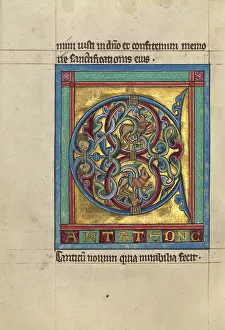 mini iusti in dño et confitemini memo
rie sanctificationis eius.
C
ANTATE DNO
Canticũ nouum quia mirabilia fecit.